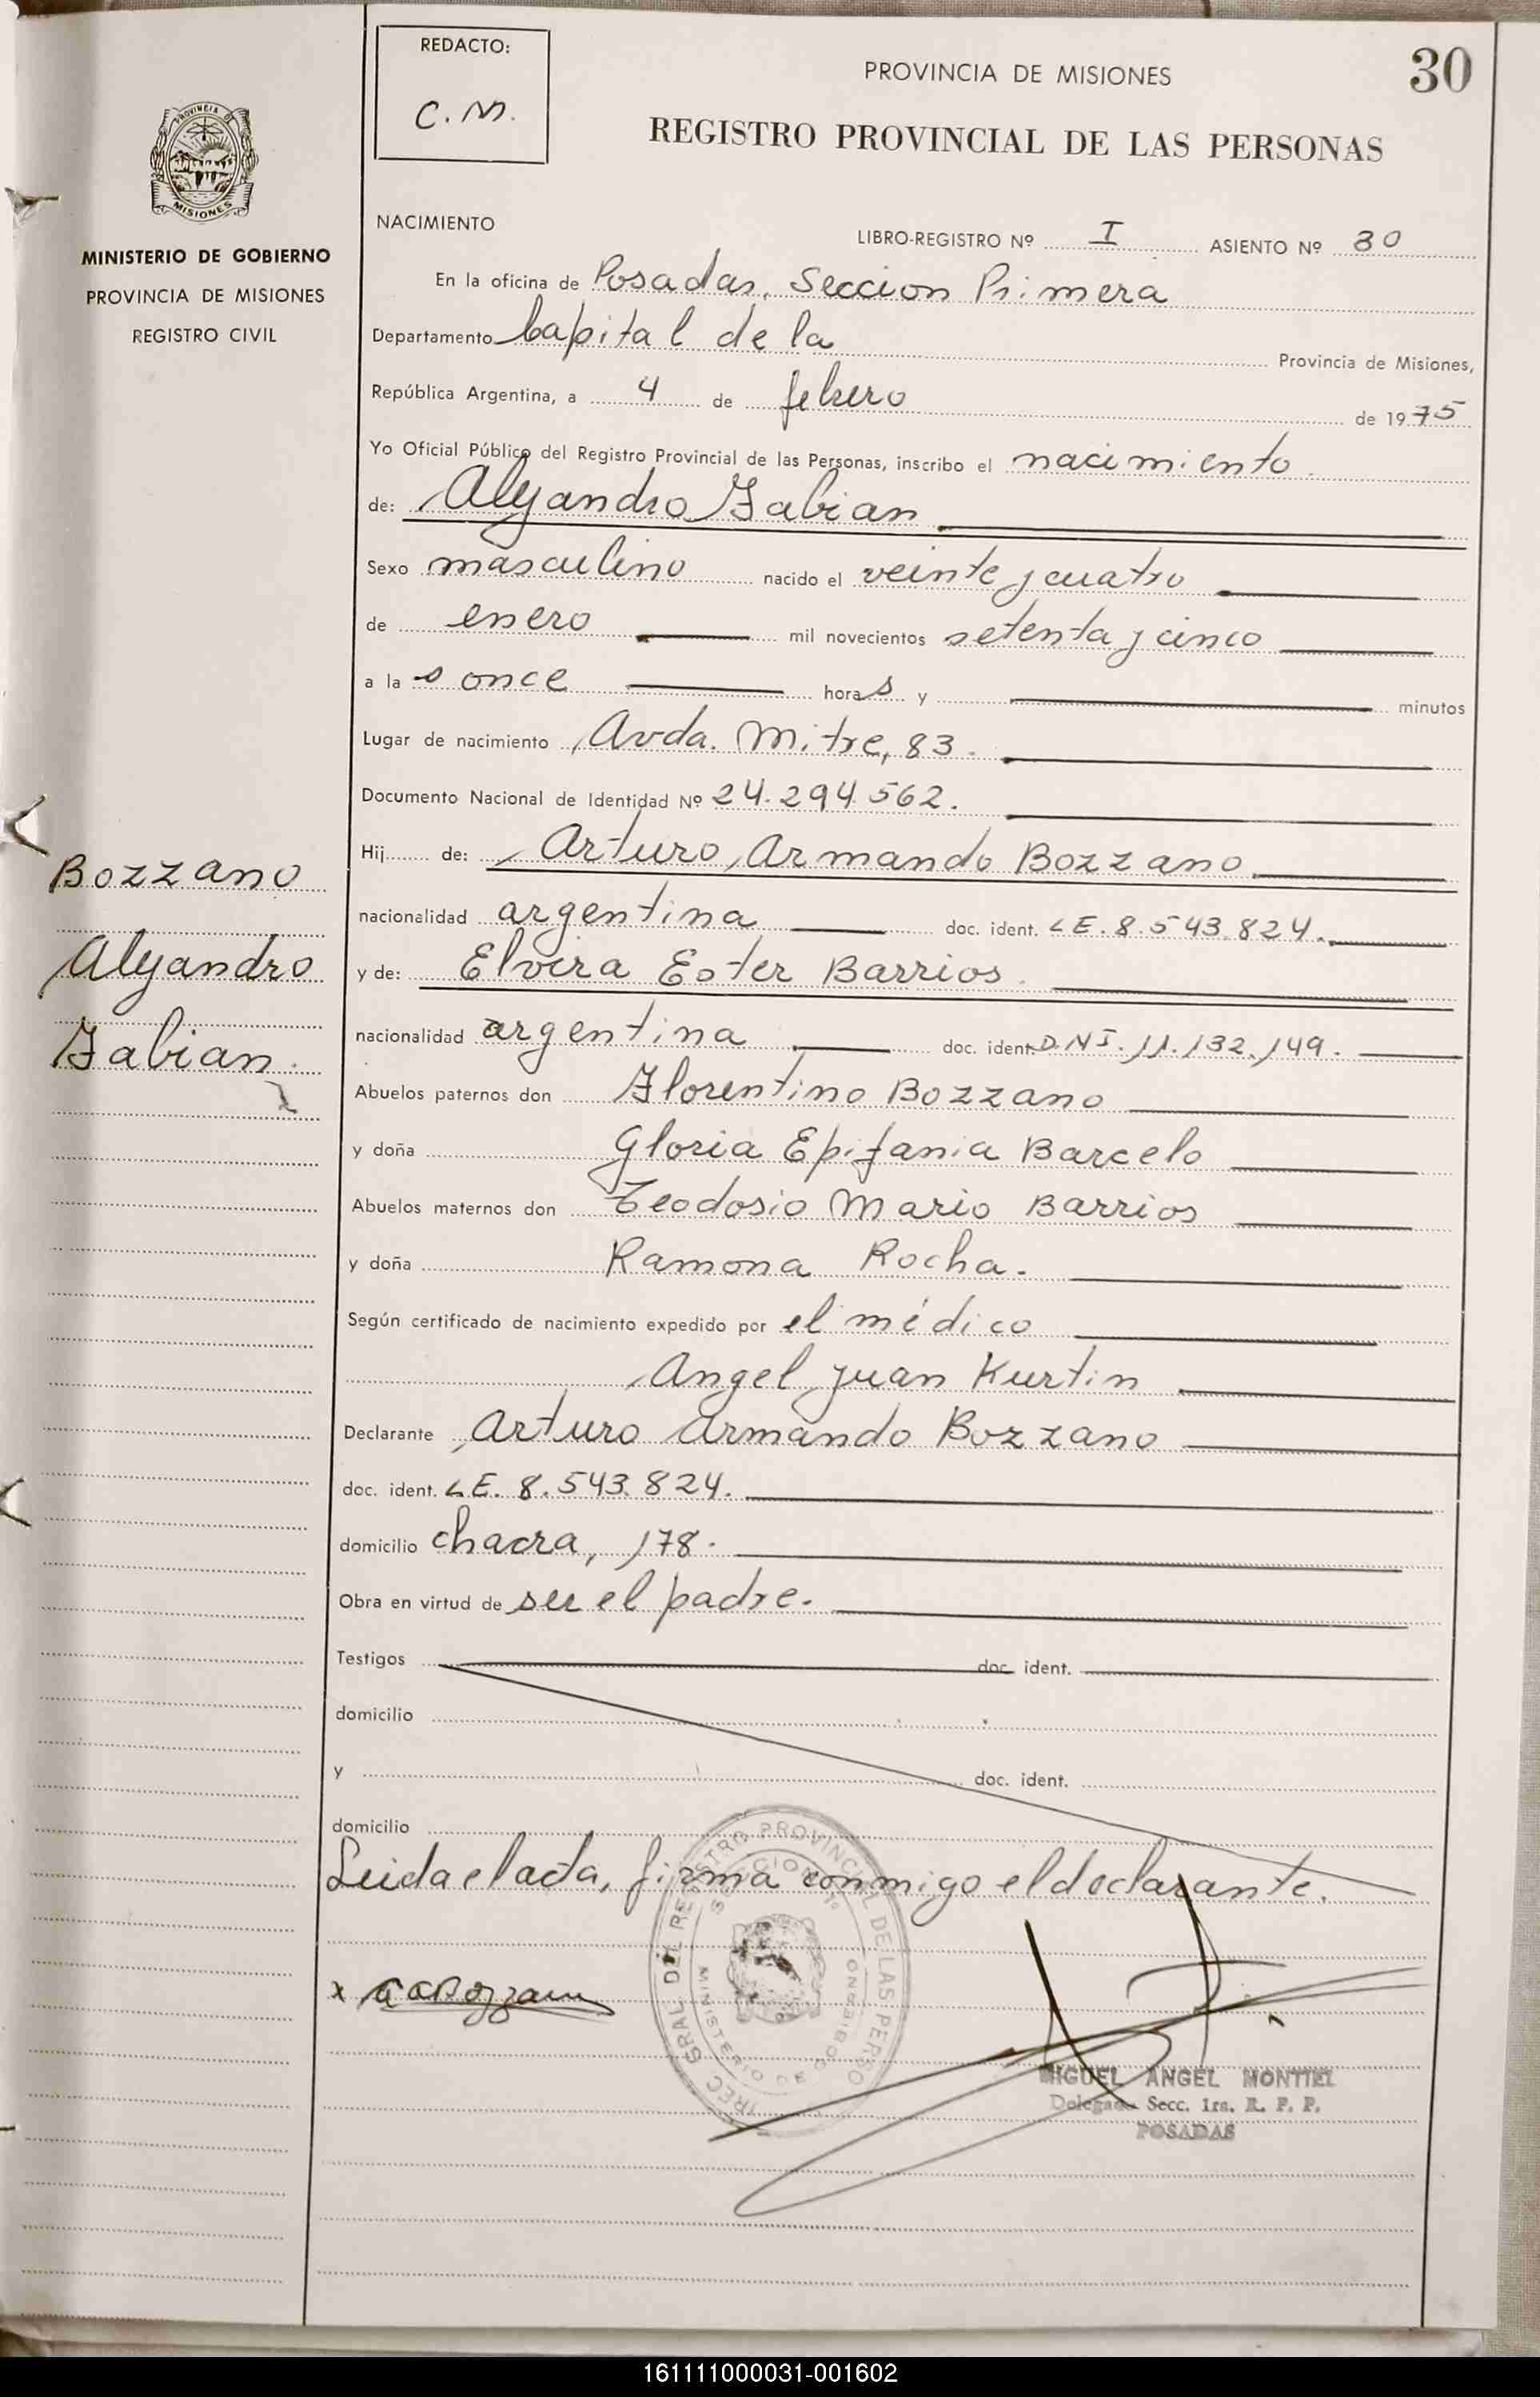 REDACTO:
C.M.
PROVINCIA DE MISIONES
30
REGISTRO PROVINCIAL DE LAS PERSONAS
PROVINCIA DE
MISIONES
MINISTERIO DE GOBIERNO
PROVINCIA DE MISIONES
REGISTRO CIVIL
NACIMIENTO
LIBRO-REGISTRO Nº I ASIENTO Nº 30
En la oficina de Posadas, Seccion Primera
Departamento Capital de la Provincia de Misiones,
República Argentina, a 4 de febrero de 1975
Yo Oficial Público del Registro Provincial de las Personas, inscribo el nacimiento
de: Alejandro Fabian
Sexo masculino nacido el veinte y cuatro
de enero mil novecientos setenta y cinco
a la s once horas y minutos
Lugar de nacimiento Avda. Mitre, 83.
Documento Nacional de Identidad Nº 24.294.562.
Hij de: Arturo Armando Bozzano
nacionalidad argentina doc. ident. LE. 8.543.824.
y de: Elvira Ester Barrios
nacionalidad argentina doc. ident. D.N.I. 11.132.149.
Abuelos paternos don Florentino Bozzano
y doña Gloria Epifania Barcelo
Abuelos maternos don Teodosio Mario Barrios
y doña Ramona Rocha.
Según certificado de nacimiento expedido por el médico
Angel Juan Kurtin
Declarante Arturo Armando Bozzano
doc. ident. LE. 8.543.824.
domicilio chacra, 178.
Obra en virtud de ser el padre.
Testigos doc. ident.
domicilio
y doc. ident.
domicilio
Leida el acta, firma conmigo el declarante.
Bozzano
Alejandro
Fabian.
x A A Bozzano
GRAL. DEL REGISTRO PROVINCIAL DE LAS PERSO
MINISTERIO DE GOBIERNO
MIGUEL ANGEL MONTIEL
Delegado Secc. 1ra. R. P. P.
POSADAS
161111000031-001602